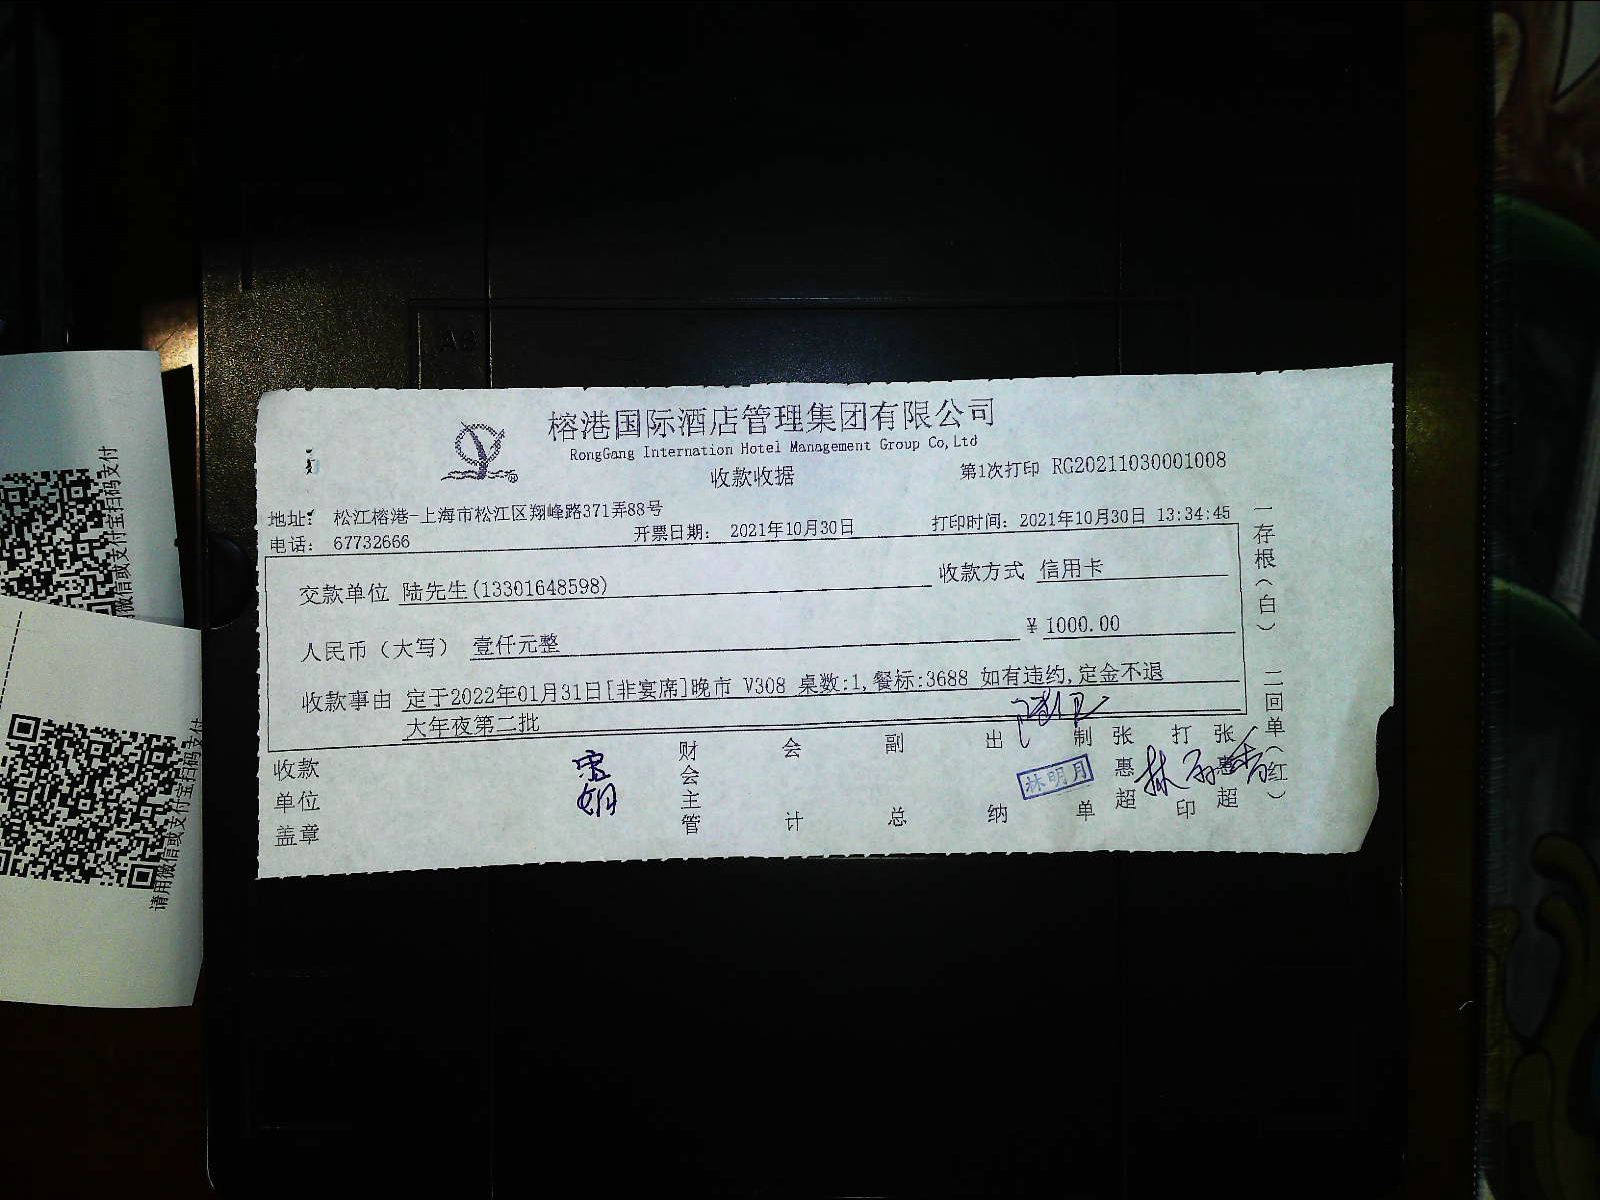 榕港国际酒店管理集团有限公司
RongGang Internation Hotel Management Group Co,Ltd
收款收据
第1次打印 RG20211030001008
地址： 松江榕港-上海市松江区翔峰路371弄88号
电话： 67732666
开票日期： 2021年10月30日
打印时间：2021年10月30日 13:34:45
交款单位 陆先生(13301648598)
收款方式 信用卡
人民币（大写） 壹仟元整
¥ 1000.00
收款事由 定于2022年01月31日[非宴席]晚市 V308 桌数:1,餐标:3688 如有违约,定金不退
大年夜第二批
收款单位盖章
财会主管
会计
副总
出纳
林明月
制单
张惠超
打印
张惠超
一存根（白） 二回单（红）
微信或支付宝扫码支付
请用微信或支付宝扫码支付